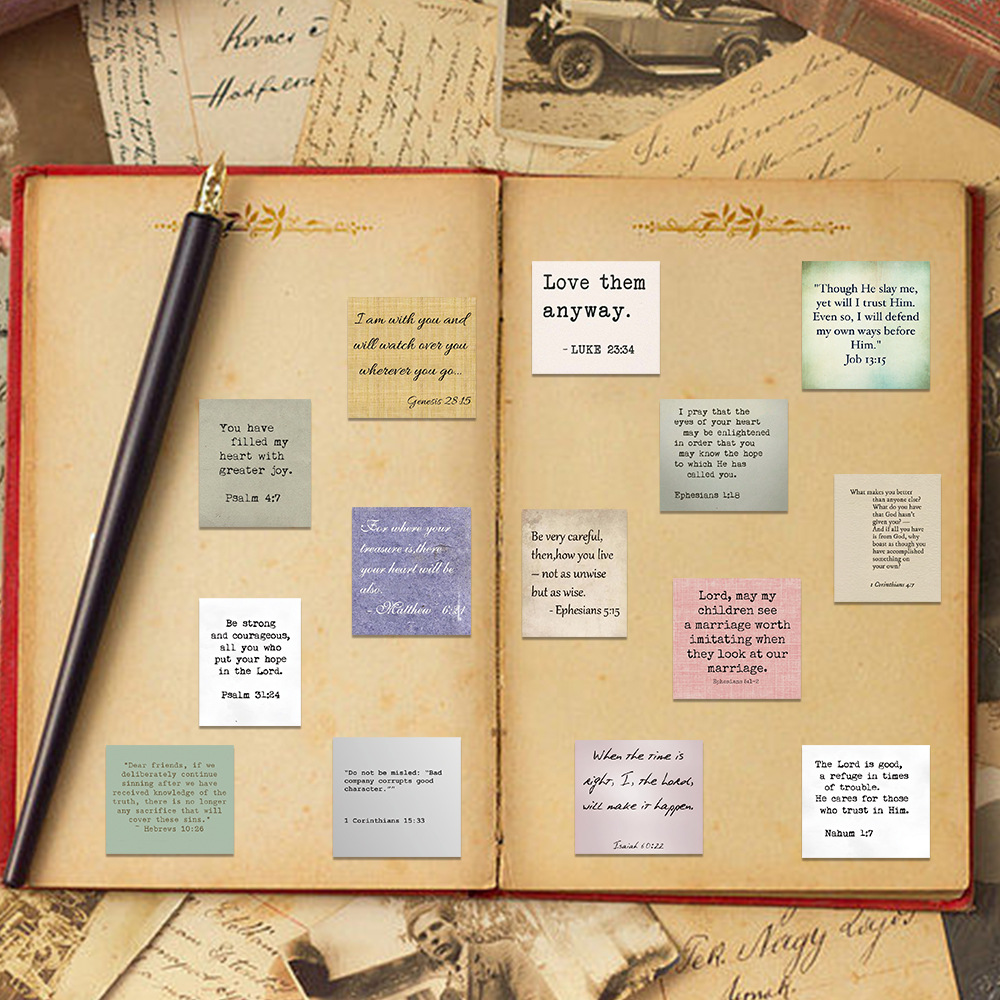 Kovács
I am with you and
will watch over you
wherever you go...
Genesis 28:15
You have
filled my
heart with
greater joy.
Psalm 4:7
For where your
treasure is,there
your heart will be
also.
- Matthew 6:21
Be strong
and courageous,
all you who
put your hope
in the Lord.
Psalm 31:24
"Dear friends, if we
deliberately continue
sinning after we have
received knowledge of the
truth, there is no longer
any sacrifice that will
cover these sins."
~ Hebrews 10:26
"Do not be misled: "Bad
company corrupts good
character.""
1 Corinthians 15:33
Love them
anyway.
- LUKE 23:34
"Though He slay me,
yet will I trust Him.
Even so, I will defend
my own ways before
Him."
Job 13:15
I pray that the
eyes of your heart
may be enlightened
in order that you
may know the hope
to which He has
called you.
Ephesians 1:18
What makes you better
than anyone else?
What do you have
that God hasn't
given you? —
And if all you have
is from God, why
boast as though you
have accomplished
something on
your own?
1 Corinthians 4:7
Be very careful,
then,how you live
— not as unwise
but as wise.
- Ephesians 5:15
Lord, may my
children see
a marriage worth
imitating when
they look at our
marriage.
Ephesians 5:1-2
When the time is
right, I, the Lord,
will make it happen.
Isaiah 60:22
The Lord is good,
a refuge in times
of trouble.
He cares for those
who trust in Him.
Nahum 1:7
Tek. Nagy Lajos